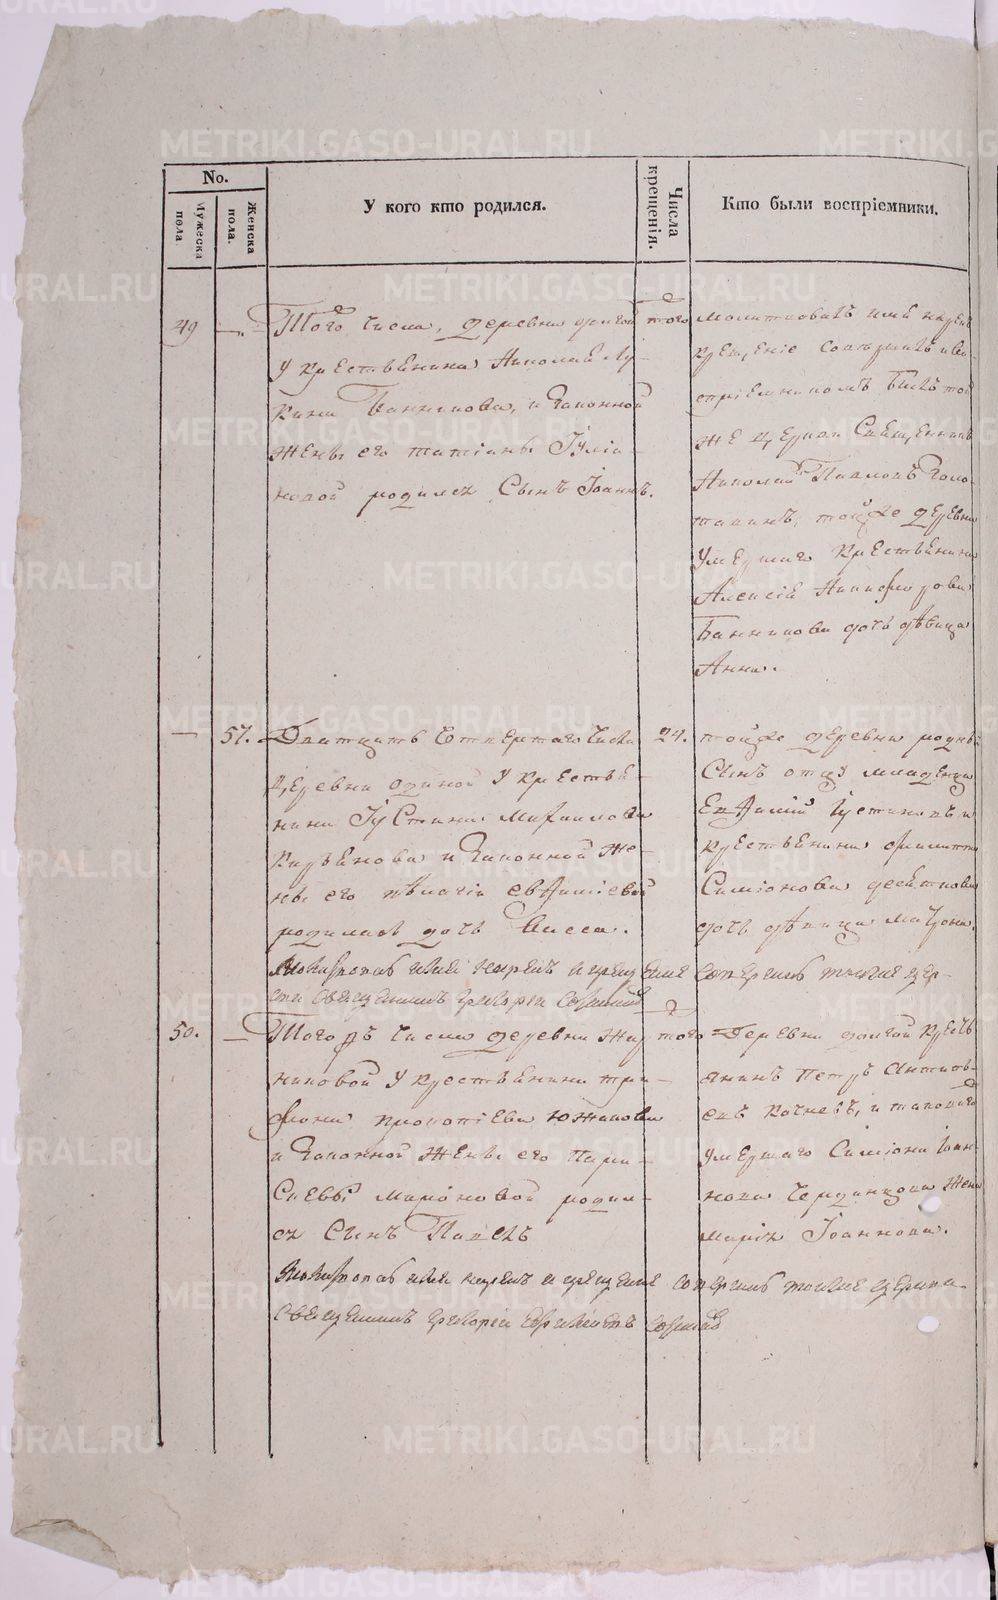 METRIKI.GASO-URAL.RU
No.
Мужеска пола.
Женска пола.
У кого кто родился.
Числа крещенія.
Кто были воспріемники.
49
Того числа, деревни долгой
у крестьянина Николая Лу-
кина Банникова, и законной
жены его татіаны Іуліа-
новой родился Сынъ Іоаннъ.
того
молитвовалъ имя нарекъ
крещеніе совершилъ и во-
спріемникомъ былъ той
же церкви Священникъ
Николай Павловъ
тойже деревни
умершаго крестьянина
Алексія Никифорова
Банникова дочь дѣвица
Анна.
57.
Дватцать Четвертаго числа
деревни одиной у крестья-
нина Іустина Михаилова
и законной же-
ны его пелагіи евфиміевой
родилась дочь Васса.
24.
тойже деревни родной
Сынъ отцу младенца
Евфимій Іустиновъ и
крестьянина филиппа
Симіонова десяткова
дочь дѣвица матрона.
Молитвовалъ имя нарекъ и крещеніе совершилъ тояже цер-
кви священникъ григорій
50.
Того жъ числа деревни
никовой у крестьянина три-
фона прокопіева южакова
и законной жены его Пара-
скевы мироновой родил-
ся Сынъ Павелъ
того
Деревни долгой кресть-
янинъ Петръ Антипь-
евъ Кочневъ, и таковаго
умершаго Симіона Іоан-
нова жена
марія Іоаннова.
Молитвовалъ имя нарекъ и крещеніе совершилъ тояже церкви
священникъ григорій